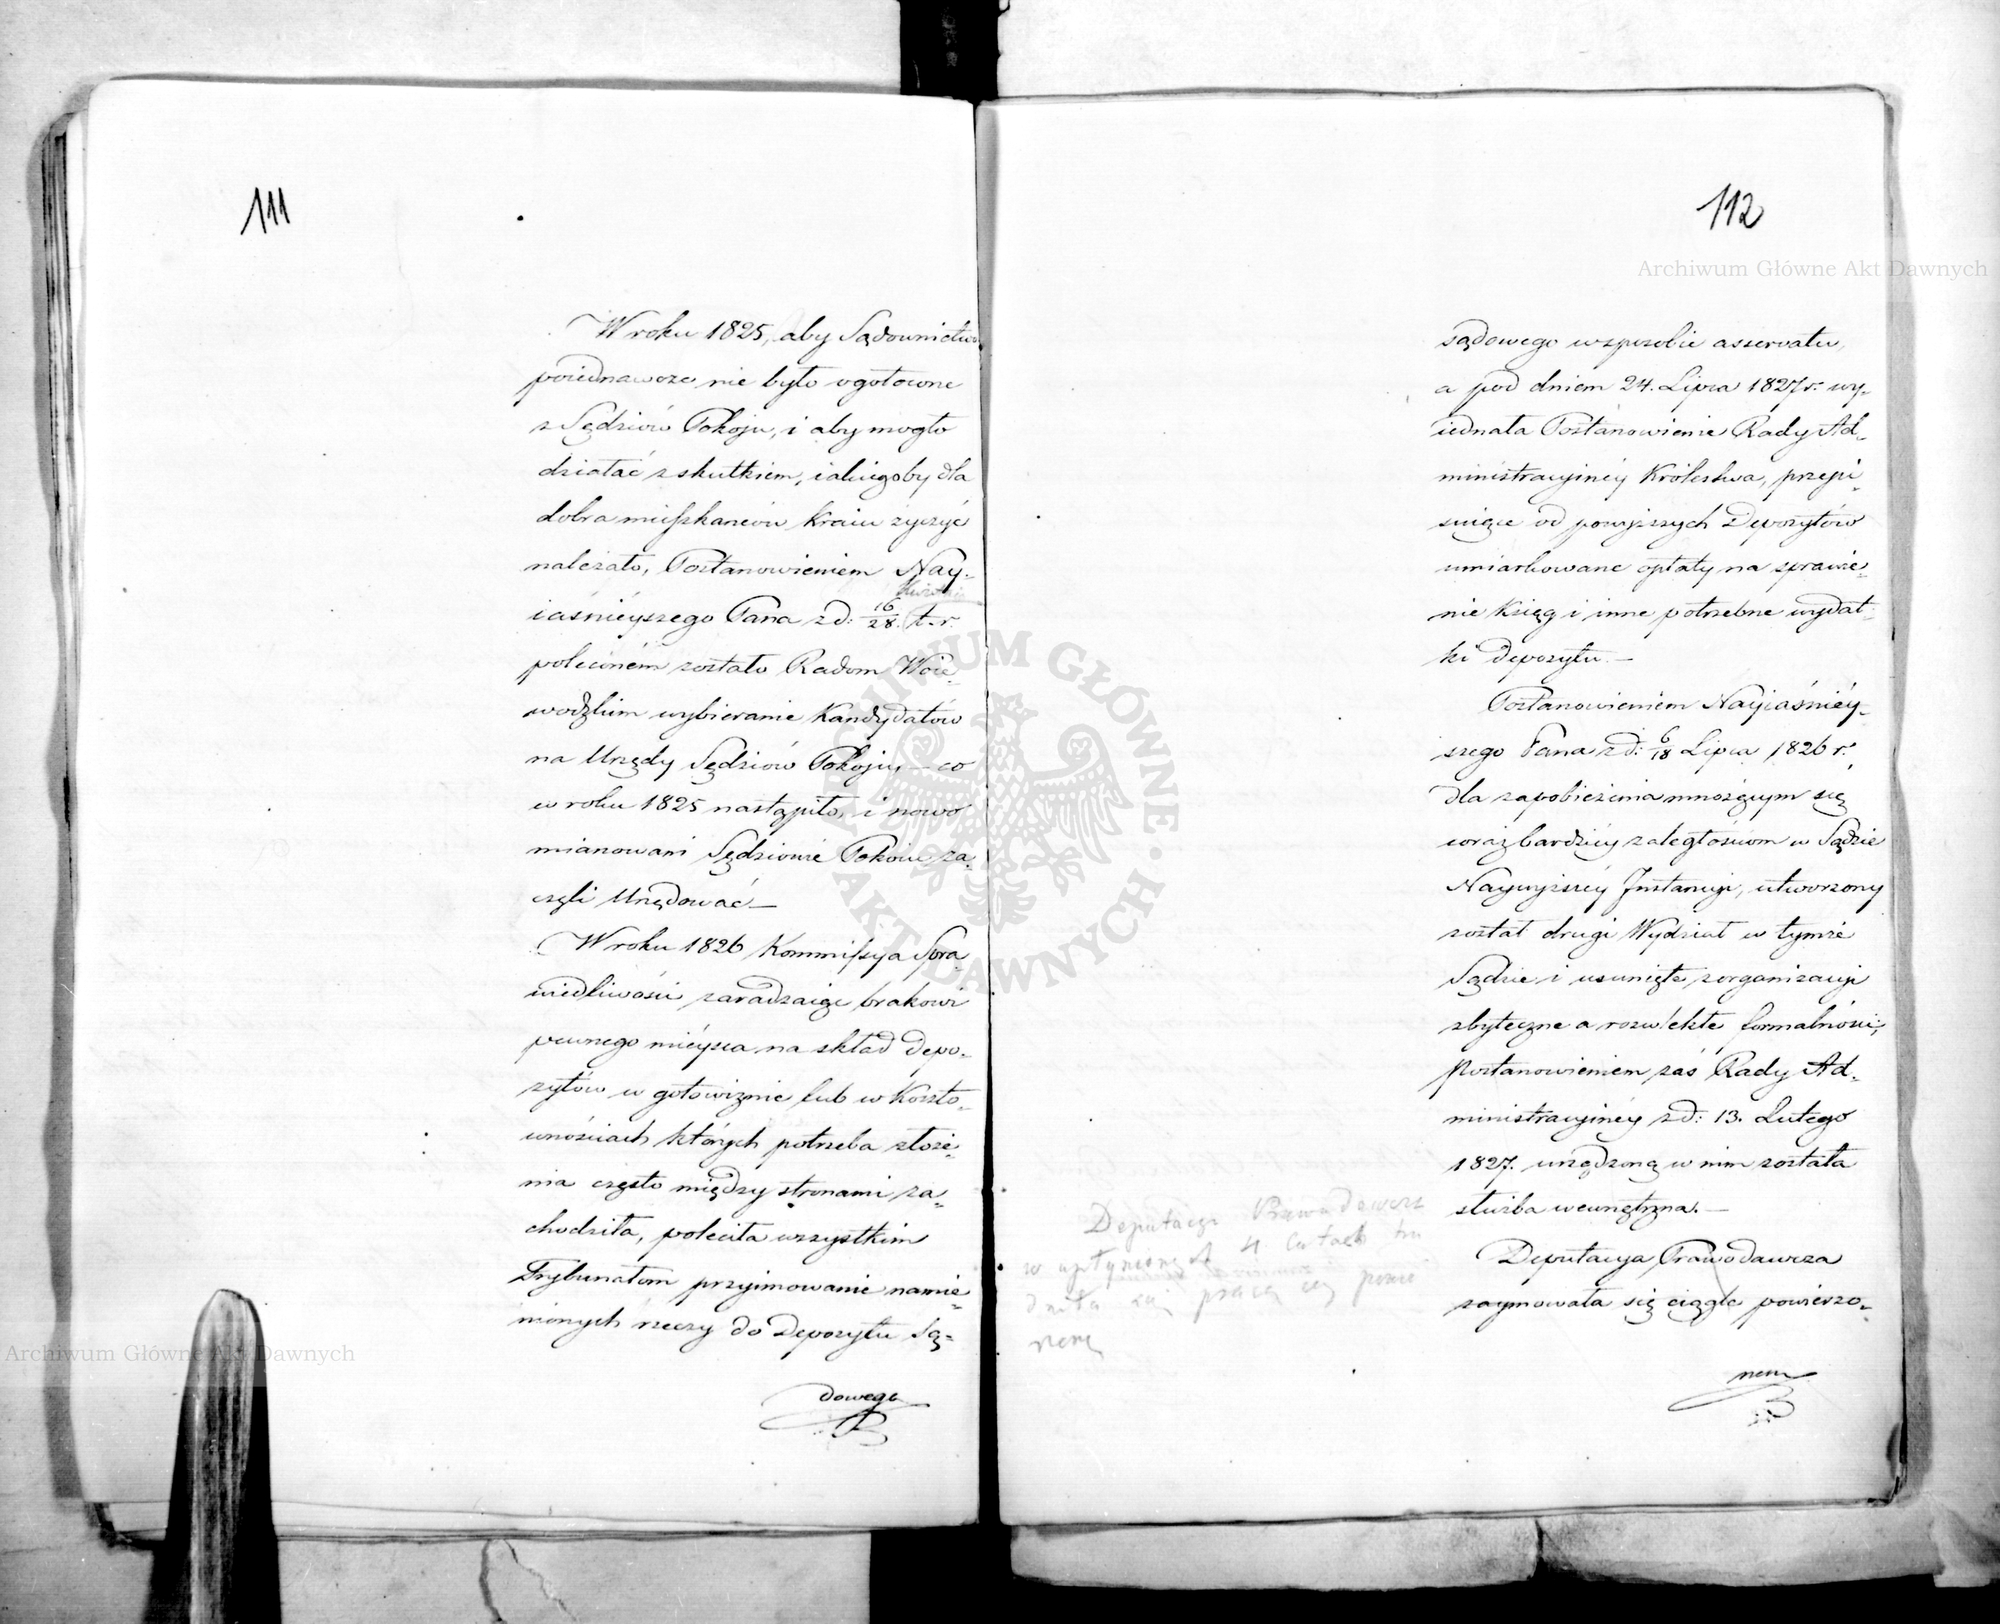 111
W roku 1825, aby Sądownictwo
poiednawcze nie było ogołocone
z Sędziów Pokoju, i aby mogło
działać z skutkiem, iakiegoby dla
dobra mieszkańców Kraiu życzyć
należało, Postanowieniem Nay-
iaśnieyszego Pana z d: 16/28. t. r.
poleconém zostało Radom Woie-
wodzkim wybieranie Kandydatów
na Urzędy Sędziów Pokoju – co
w roku 1825 nastąpiło, i nowo
mianowani Sędziowie Pokoiu za-
częli Urzędować –
W roku 1826 Kommissya Spra-
wiedliwości zaradzaiąc brakowi
pewnego mieysca na skład Depo-
zytów w gotowiznie lub w Koszto-
wnościach których potrzeba złoże-
nia często między stronami za-
chodziła, poleciła wszystkim
Trybunałom przyimowanie namie-
nionych rzeczy do Depozytu Są-
dowego
112
sądowego w sposobie asservatu,
a pod dniem 24. Lipca 1827 r. wy-
iednała Postanowienie Rady Ad-
ministracyinéy Królestwa, przepi-
suiące od powyższych Depozytów
umiarkowane opłaty na sprawie-
nie Ksiąg i inne potrzebne wydat-
ki Depozytu. –
Postanowieniem Nayiaśniéy-
szego Pana z d: 6/18 Lipca 1826 r.
dla zapobieżenia mnożącym się
coraz bardziéy zaległościom w Sądzie
Naywyższéy Instancyi, utworzony
został drugi Wydział w tymże
Sądzie i usunięte z organizacyi
zbyteczne a rozwlekłe formalności;
Postanowieniem zaś Rady Ad-
ministracyinéy z d: 13. Lutego
1827. urządzoną w nim została
służba wewnętrzna. –
Deputacya Prawodawcza
w upłynionych 4 latach tru
dniła się pracą iey powie
rzoną
Deputacya Prawodawcza
zaymowała się ciągle powierzo-
nem
Archiwum Główne Akt Dawnych
Archiwum Główne Akt Dawnych
ARCHIWUM GŁÓWNE
AKT DAWNYCH